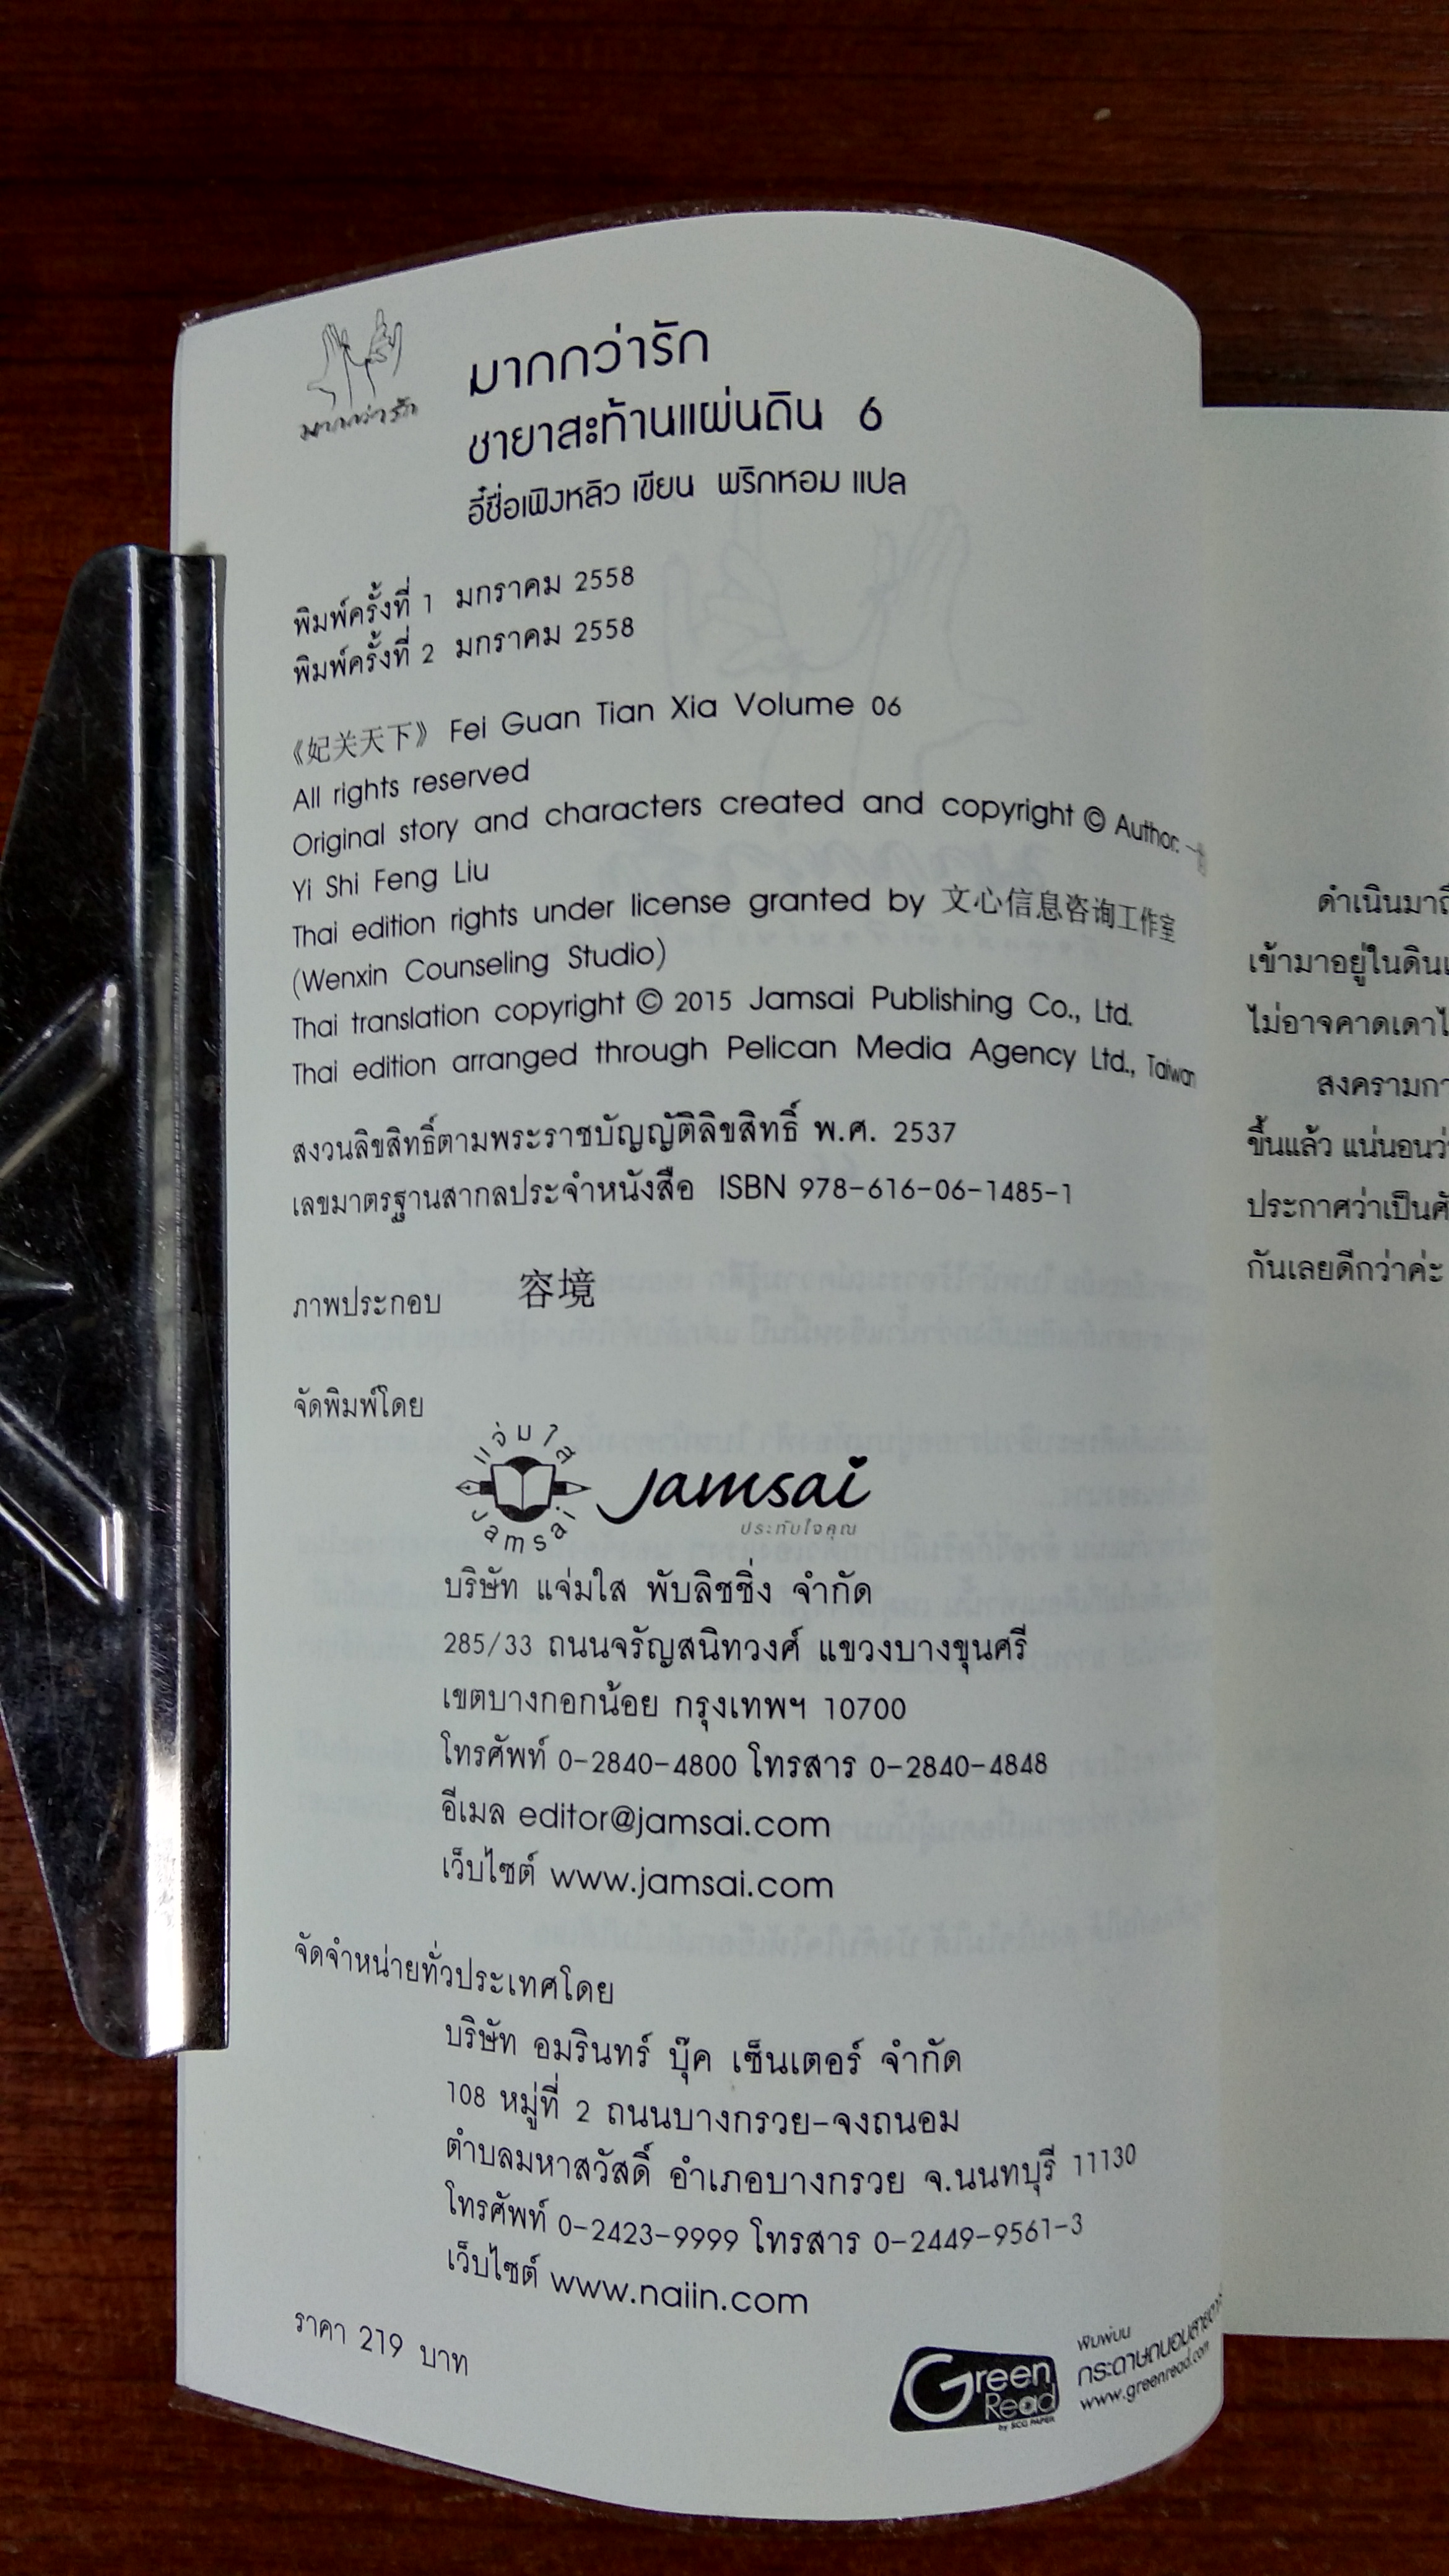 มากกว่ารัก
มากกว่ารัก
ชายาสะท้านแผ่นดิน 6
อี๋ซื่อเฟิงหลิว เขียน พริกหอม แปล
พิมพ์ครั้งที่ 1 มกราคม 2558
พิมพ์ครั้งที่ 2 มกราคม 2558
《妃关天下》 Fei Guan Tian Xia Volume 06
All rights reserved
Original story and characters created and copyright © Author: 一
Yi Shi Feng Liu
Thai edition rights under license granted by 文心信息咨询工作室
(Wenxin Counseling Studio)
Thai translation copyright © 2015 Jamsai Publishing Co., Ltd.
Thai edition arranged through Pelican Media Agency Ltd., Taiwan
สงวนลิขสิทธิ์ตามพระราชบัญญัติลิขสิทธิ์ พ.ศ. 2537
เลขมาตรฐานสากลประจำหนังสือ ISBN 978-616-06-1485-1
ภาพประกอบ 容境
จัดพิมพ์โดย
แจ่มใส
Jamsai
Jamsai
ประทับใจคุณ
บริษัท แจ่มใส พับลิชชิ่ง จำกัด
285/33 ถนนจรัญสนิทวงศ์ แขวงบางขุนศรี
เขตบางกอกน้อย กรุงเทพฯ 10700
โทรศัพท์ 0-2840-4800 โทรสาร 0-2840-4848
อีเมล editor@jamsai.com
เว็บไซต์ www.jamsai.com
จัดจำหน่ายทั่วประเทศโดย
บริษัท อมรินทร์ บุ๊ค เซ็นเตอร์ จำกัด
108 หมู่ที่ 2 ถนนบางกรวย-จงถนอม
ตำบลมหาสวัสดิ์ อำเภอบางกรวย จ.นนทบุรี 11130
โทรศัพท์ 0-2423-9999 โทรสาร 0-2449-9561-3
เว็บไซต์ www.naiin.com
ราคา 219 บาท
Green Read
by SCG PAPER
พิมพ์บน
กระดาษถนอมสายตา
www.greenread.com
ดำเนินมาถึ
เข้ามาอยู่ในดินแ
ไม่อาจคาดเดาไ
สงครามกา
ขึ้นแล้ว แน่นอนว่
ประกาศว่าเป็นศั
กันเลยดีกว่าค่ะ